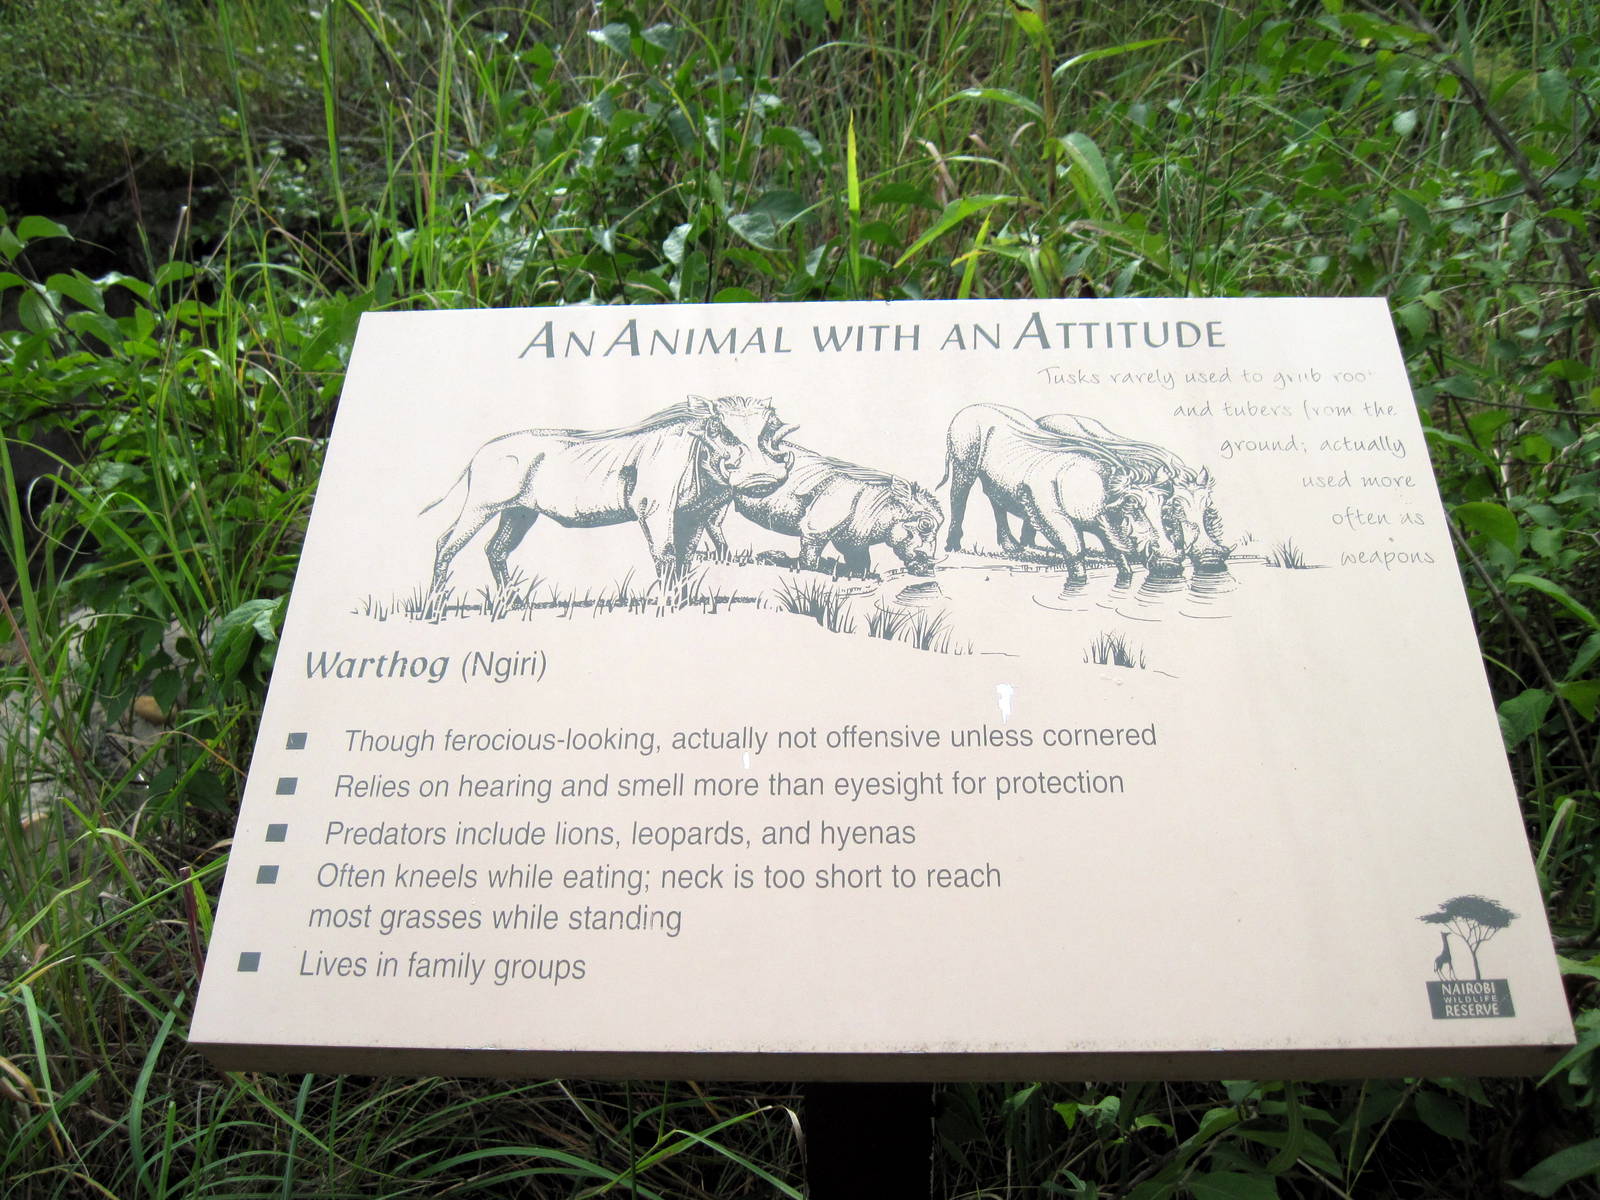 AN ANIMAL WITH AN ATTITUDE
Tusks rarely used to grub roo
and tubers from the
ground; actually
used more
often as
weapons
Warthog (Ngiri)
Though ferocious-looking, actually not offensive unless cornered
Relies on hearing and smell more than eyesight for protection
Predators include lions, leopards, and hyenas
Often kneels while eating; neck is too short to reach
most grasses while standing
Lives in family groups
NAIROBI
WILDLIFE
RESERVE